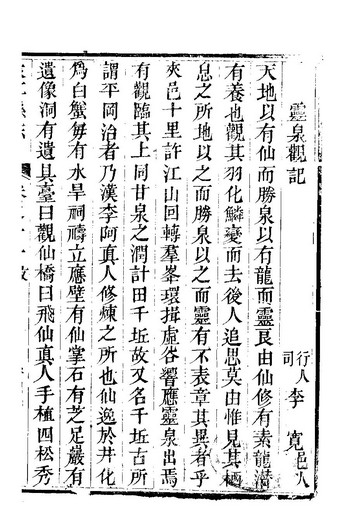 靈泉觀記
行人司 李寬 邑人
天地以有仙而勝泉以有龍而靈艮由仙修有素龍潛
有養也觀其羽化鱗變而去後人追思莫由惟見其栖
息之所地以之而勝泉以之而靈有不表章其異者乎
夾邑十里許江山回轉羣峯環揖虛谷響應靈泉出焉
有觀臨其上同甘泉之潤計田千坵故又名千坵古所
謂平岡治者乃漢李阿真人修煉之所也仙逸於井化
為白蟹每有水旱祠禱立應壁有仙掌石有芝足巖有
遺像洞有遺具臺曰觀仙橋曰飛仙真人手植四松秀